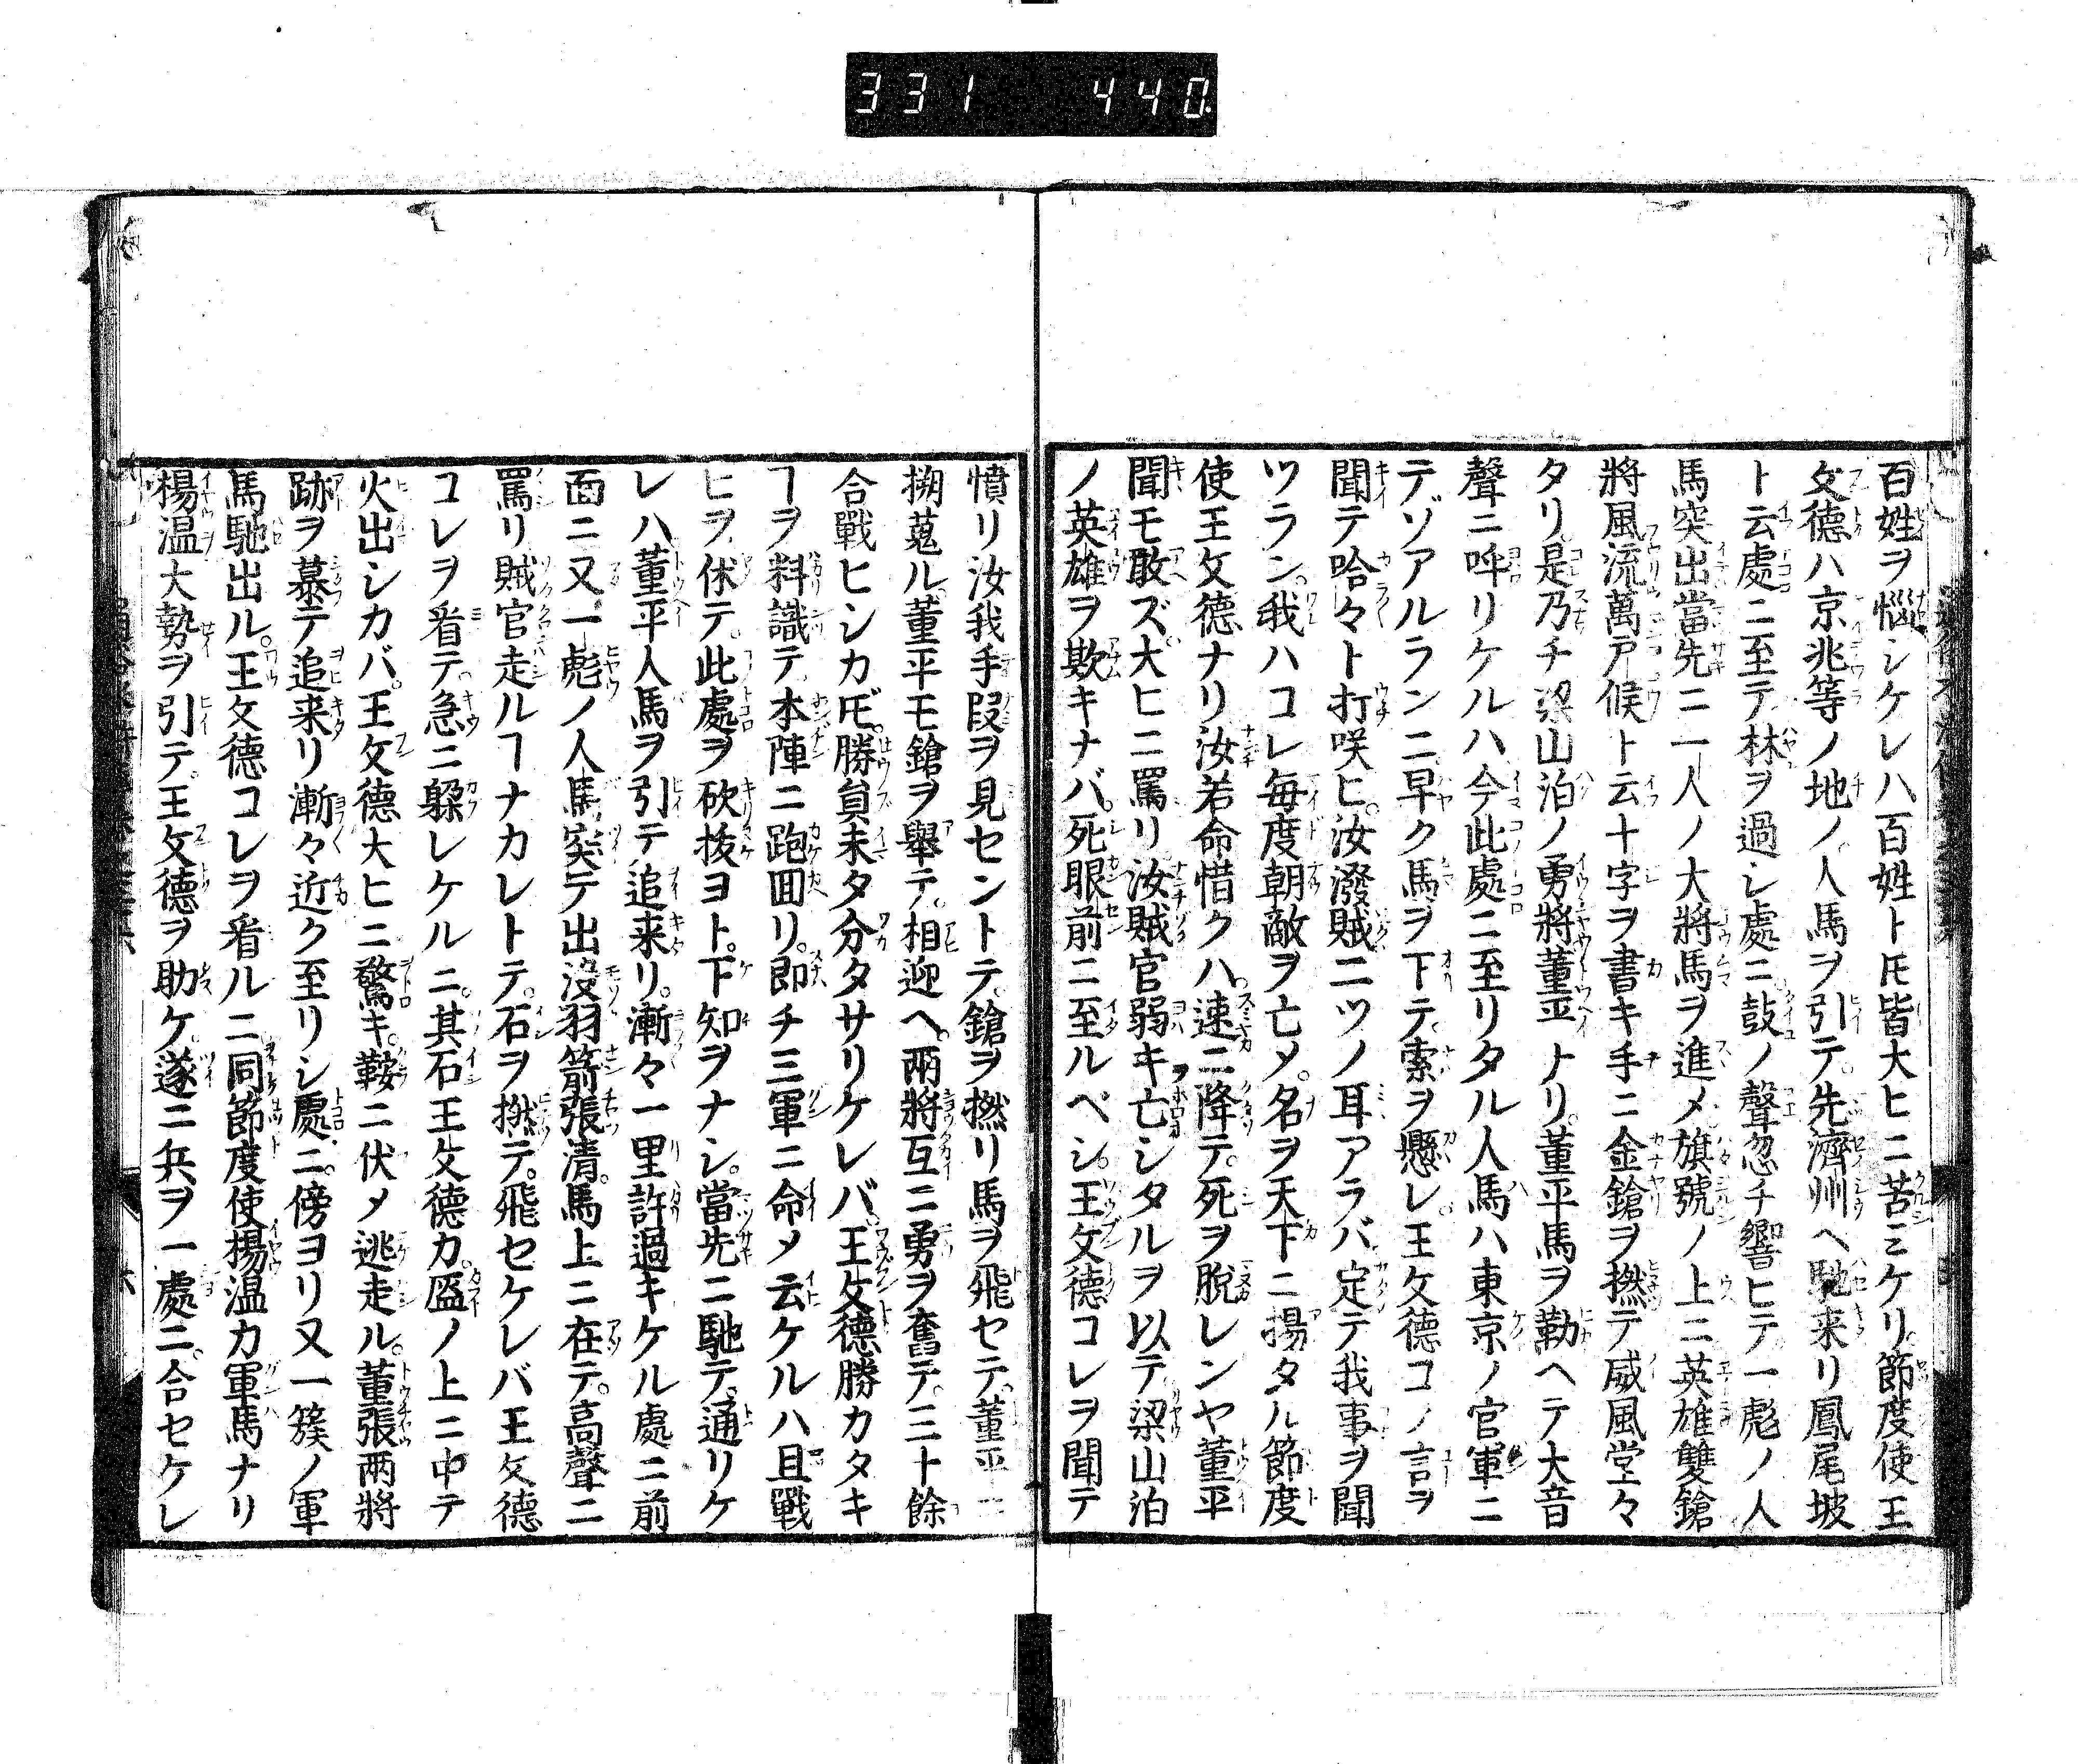 331 440
百姓ヲ惱シケレハ百姓トモ皆大ヒニ苦ミケリ。節度使王
文德ハ京兆等ノ地ノ人馬ヲ引テ。先濟州ヘ馳来リ鳳尾坡
ト云處ニ至テ林ヲ過シ處ニ鼓ノ聲忽チ響ヒテ一彪ノ人
馬突出當先ニ一人ノ大將馬ヲ進メ旗號ノ上ニ英雄雙鎗
將風流萬戸候ト云十字ヲ書キ手ニ金鎗ヲ撚テ威風堂々
タリ。是乃チ梁山泊ノ勇將董平ナリ。董平馬ヲ勒ヘテ大音
聲ニ呼リケルハ今此處ニ至リタル人馬ハ東京ノ官軍ニ
テゾアルランニ。早ク馬ヲ下テ。索ヲ懸レ。王文德コノ言ヲ
聞テ哈々ト打咲ヒ。汝潑賊ニツノ耳アラバ定テ我事ヲ聞
ツラン。我ハコレ毎度朝敵ヲ亡メ。名ヲ天下ニ揚タル節度
使王文德ナリ汝若命惜クハ。速ニ降テ。死ヲ脱レンヤ董平
聞モ敢ズ大ヒニ罵リ汝賊官弱キヲ亡シタルヲ以テ梁山泊
ノ英雄ヲ欺キナバ。死眼前ニ至ルベシ。王文德コレヲ聞テ
憤リ汝我手叚ヲ見セントテ。鎗ヲ撚リ馬ヲ飛セテ。董平ニ
搠蒐ル。董平モ鎗ヲ舉テ。相迎ヘ。兩將互ニ勇ヲ奮テ。三十餘
合戰ヒシカ𪜈。勝負未タ分タサリケレバ。王文德勝カタキ
ヿヲ料識テ。本陣ニ跑囬リ。即チ三軍ニ命メ云ケルハ且戰
ヒヲ休テ。此處ヲ砍抜ヨト。下知ヲナシ。當先ニ馳テ。通リケ
レハ董平人馬ヲ引テ追来リ。漸々一里許過キケル處ニ前
面ニ又一彪ノ人馬突テ出没羽箭張淸。馬上ニ在テ。高聲ニ
罵リ賊官走ルヿナカレトテ。石ヲ撚テ。飛セケレバ王文德
コレヲ看テ。急ニ躱レケルニ。其石王文德カ。盔ノ上ニ中テ
火出シカバ。王文德大ヒニ驚キ。鞍ニ伏メ逃走ル。董張兩將
跡ヲ慕テ追来リ漸々近ク至リシ處ニ。傍ヨリ又一簇ノ軍
馬馳出ル。王文德コレヲ看ルニ同節度使楊温カ軍馬ナリ
楊温大勢ヲ引テ。王文德ヲ助ケ。遂ニ兵ヲ一處ニ。合セケレ